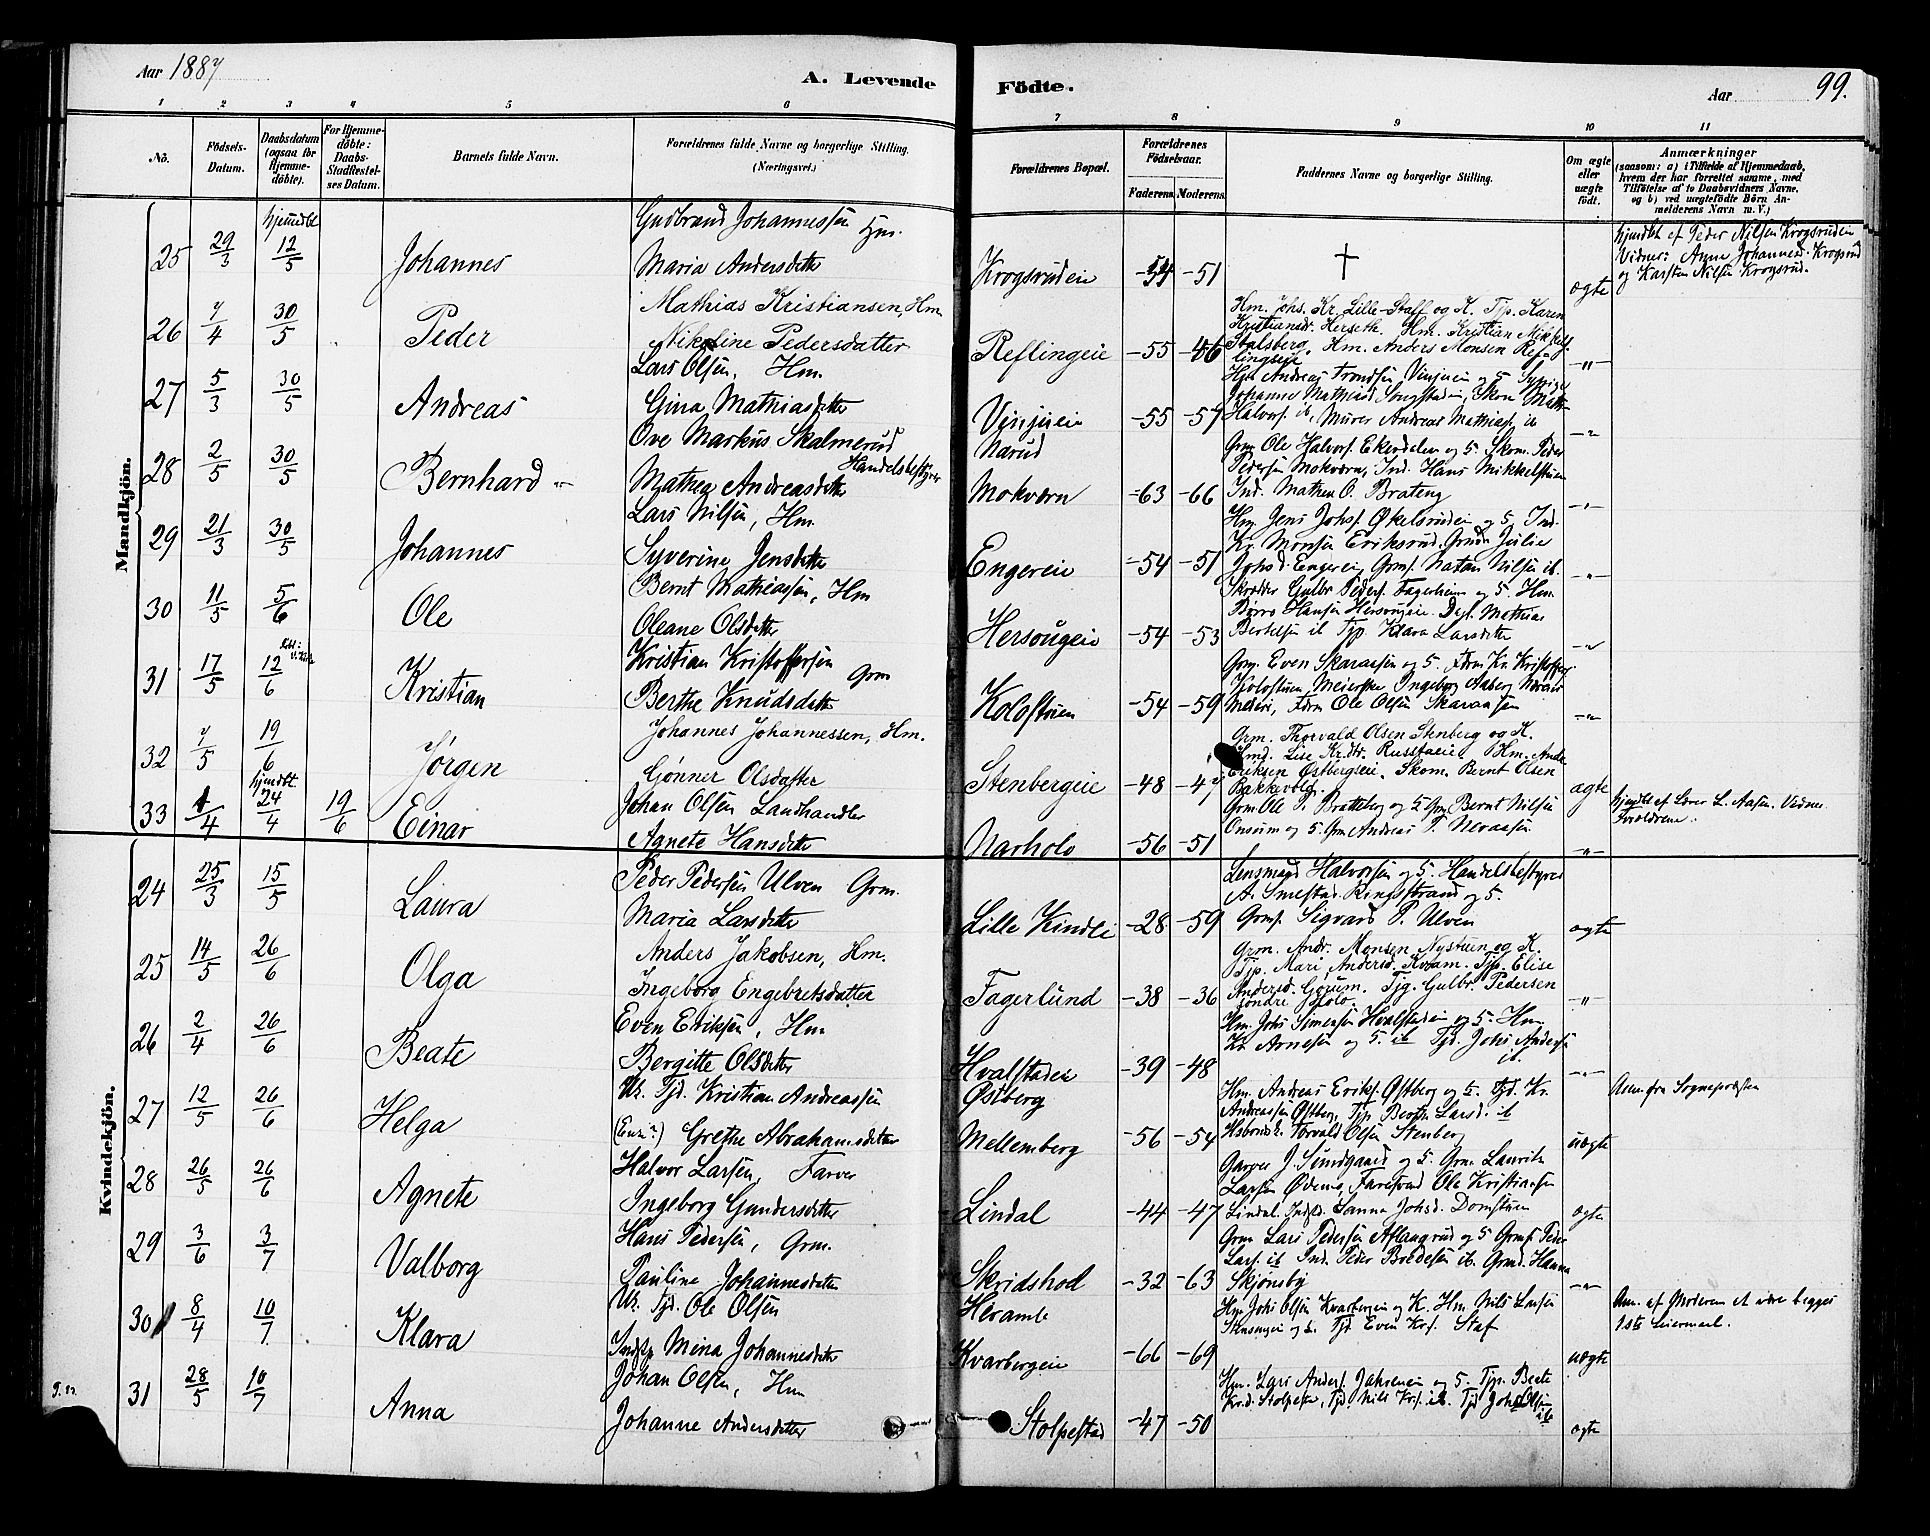 Aar 1887
A. Levende
Födte.
Aar
99.
1 2 3 4 5 6 7 8 9 10 11
No.
Födsels-Datum.
Daabsdatum (ogsaa for Hjemme-döbte).
For Hjemme-döbte: Daabs-Stadfæstel-ses Datum.
Barnets fulde Navn.
Forældrenes fulde Navne og borgerlige Stilling.
(Næringsvei.)
Forældrenes Bopæl.
Forældrenes Födselsaar.
Faderens. Moderens.
Faddernes Navne og borgerlige Stilling.
Om ægte eller uægte födt.
Anmærkninger
(saasom: a) i Tilfælde af Hjemmedaab, hvem der har forrettet samme, med Tilföielse af to Daabsvidners Navne, og b) ved uægtefödte Börn An-melderens Navn m. V.)
Mandkjön.
25 29/3 hjemdbt 12/5 Johannes
Gudbrand Johannessen Hm.
Maria Andersdatter
Krogsrudeie -51 † ægte
hjemdbt af Peder Nilsen Krogsrudeie
Vidner: Anne Johannesd. Krogsrud
og Karsten Nilsen Krogsrud.
26 7/4 30/5 Peder
Mathias Kristiansen, Hm.
Nikoline Pedersdatter
Reflingeie -55 -46
Hm. Johs. Kr. Lille-Staff og K. Tjp. Karen
Kristiansdr. Herseth. Hm. Kristian Mikkels.
Stalsberg. Hm. Anders Monsen Ref-
lingeie -"-
27 5/3 30/5 Andreas
Lars Olsen, Hm.
Gina Mathiasdatter
Vinjueie -55 -57
Hm Andreas Trondsen, Vinjueie og
Johanne Mathiasd
Halvors. ib, Murer Andreas Mathias. ib -"-
28 2/5 30/5 Bernhard
Ove Markus Skalmerud
Handelsbestyrer
Mathea Andreasdatter
Narud
Mokværn -63 -66
Grm Ole Halvors. Ekendalen og 5. Skom. Peder
Pedersen Mokværn, Ind. Hans Mikkelstuen
Ind. Mathea O. Brateng -"-
29 21/3 30/5 Johannes
Lars Nilsen, Hm.
Syverine Jensdatter
Engereie -54 -51
Hm Jens Johs. Økelsrudeie og 5. Ind.
Kr. Monsen Eriksrud. Julie
Johsd. Engereie, Grms. Natan Nilsen ib. -"-
30 11/5 5/6 Ole
Bernt Mathiassen, Hm
Oleane Olsdatter
Hersougeie -54 -53
Skrædder Gulbr Peders. Fagerheim og 5. Hm.
Børre Hansen Hersougeie. Mathias
Bertelsen ib Tjp. Klara Larsdatter -"-
31 17/5 12/6 Kristian
Kristian Kristoffersen Grm
Berthe Knudsdatter
Kolostuen -54 -59
Grm. Even Skaraasen og 5. Kr. Kristoffer.
Kolostuen, Meierske Ingeborg Aaberg
Meieri, Ole Olsen Skaraasen -"-
32 7/5 19/6 Jørgen
Johannes Johannessen, Hm.
Gønner Olsdatter
Stenbergeie -48 -47
Grm. Thorvald Olsen Stenberg og K.
Lise Kr.dtr. Russtueie Hm. Andr.
Eriksen Østbergeie. Skom. Bernt Olsen
Bakkevold. ægte
33 1/4 hjemdbt. 24/4 19/6 Einar
Johan Olsen Landhandler
Agnete Hansdatter
Narholo -56 -51
Grm Ole P. Bratteberg og 5. Grm Bernt Nilsen
Onsum og 5. Grm Andreas P. -"-
hjemdbt af Lærer L. Aasen. Vidner
Forældrene.
Kvindekjön.
24 25/3 15/5 Laura
Peder Pedersen Ulven Grm.
Maria Larsdatter
Lille Kindli -28 -59
Lensmand Halvorsen og 5. Handelsbestyrer
A. Smestad Ringsstrand og 5.
Grms. Sigvard P. Ulven ægte
25 14/5 26/6 Olga
Anders Jakobsen, Hm.
Ingeborg Engebretsdatter
Fagerlund -38 -36
Grm. Andr. Monsen Nystuen og K.
Tjp. Mari Andersd. Kvam. Tjp. Elise
Andersd. Gørum. Tjg. Gulbr. Pedersen
søndre Holo. -"-
26 2/4 26/6 Beate
Even Eriksen, Hm
Bergitte Olsdatter
Hvalstadeie -39 -48
Hm. Johs Simensen Hvalstadeie og 5. Hm.
Kr Arnesen og 5. ib Tjd. Johs Anders.
ib. -"-
27 12/5 26/6 Helga
Uk. Tjd. Kristian Andreassen
(Enke) Grethe Abrahamsdatter
Østberg
Mellemberg -56 -54
Hm. Andreas Eriks. Østberg og 5. Tjd. Kr.
Andreassen Østberg, Tjp Berthe Larsd. ib
Torvald Olsen Stenberg uægte
Anm. fra Sognepræsten
28 26/5 26/6 Agnete
Halvor Larsen, Farver
Ingeborg Gundersdatter
Lindal -44 -47
Garver J. Sundgaard og 5. Grm Laurits
Larsen Ødems, Ole Kristiansen
Lindal. Sanna Johsd. Domstuen ægte
29 3/6 3/7 Valborg
Hans Pedersen, Grm.
Pauline Johannesdatter
Skridshol -32 -63
Grm Lars Pedersen Aflangrud og 5 Grms. Peder
Lars. ib Ind. Peder Bredesen ib. Grmd. Hanna
Skjønsby -"-
30 8/4 10/7 Klara
Uk. Tjd. Ole Olsen
Indstp Mina Johannesdatter
Heramb
Kvarbergeie -66 -69
Hm Johs Olsen Kvarbergeie og K. Hm. Nils Larsen
og 5. Tjd Even Krs. Staf uægte
Anm. af Moderen at være begges
1ste Leiermaal.
31 28/5 10/7 Anna
Johan Olsen, Hm
Johanne Andersdatter
Stolpestad -47 -50
Hm. Lars Anders. Jahreneie og 5. Tjp. Beate
Kr.d. Stolpestad, Tjd Nils Krs. ib. Tjd Johs Olsen
ib ægte